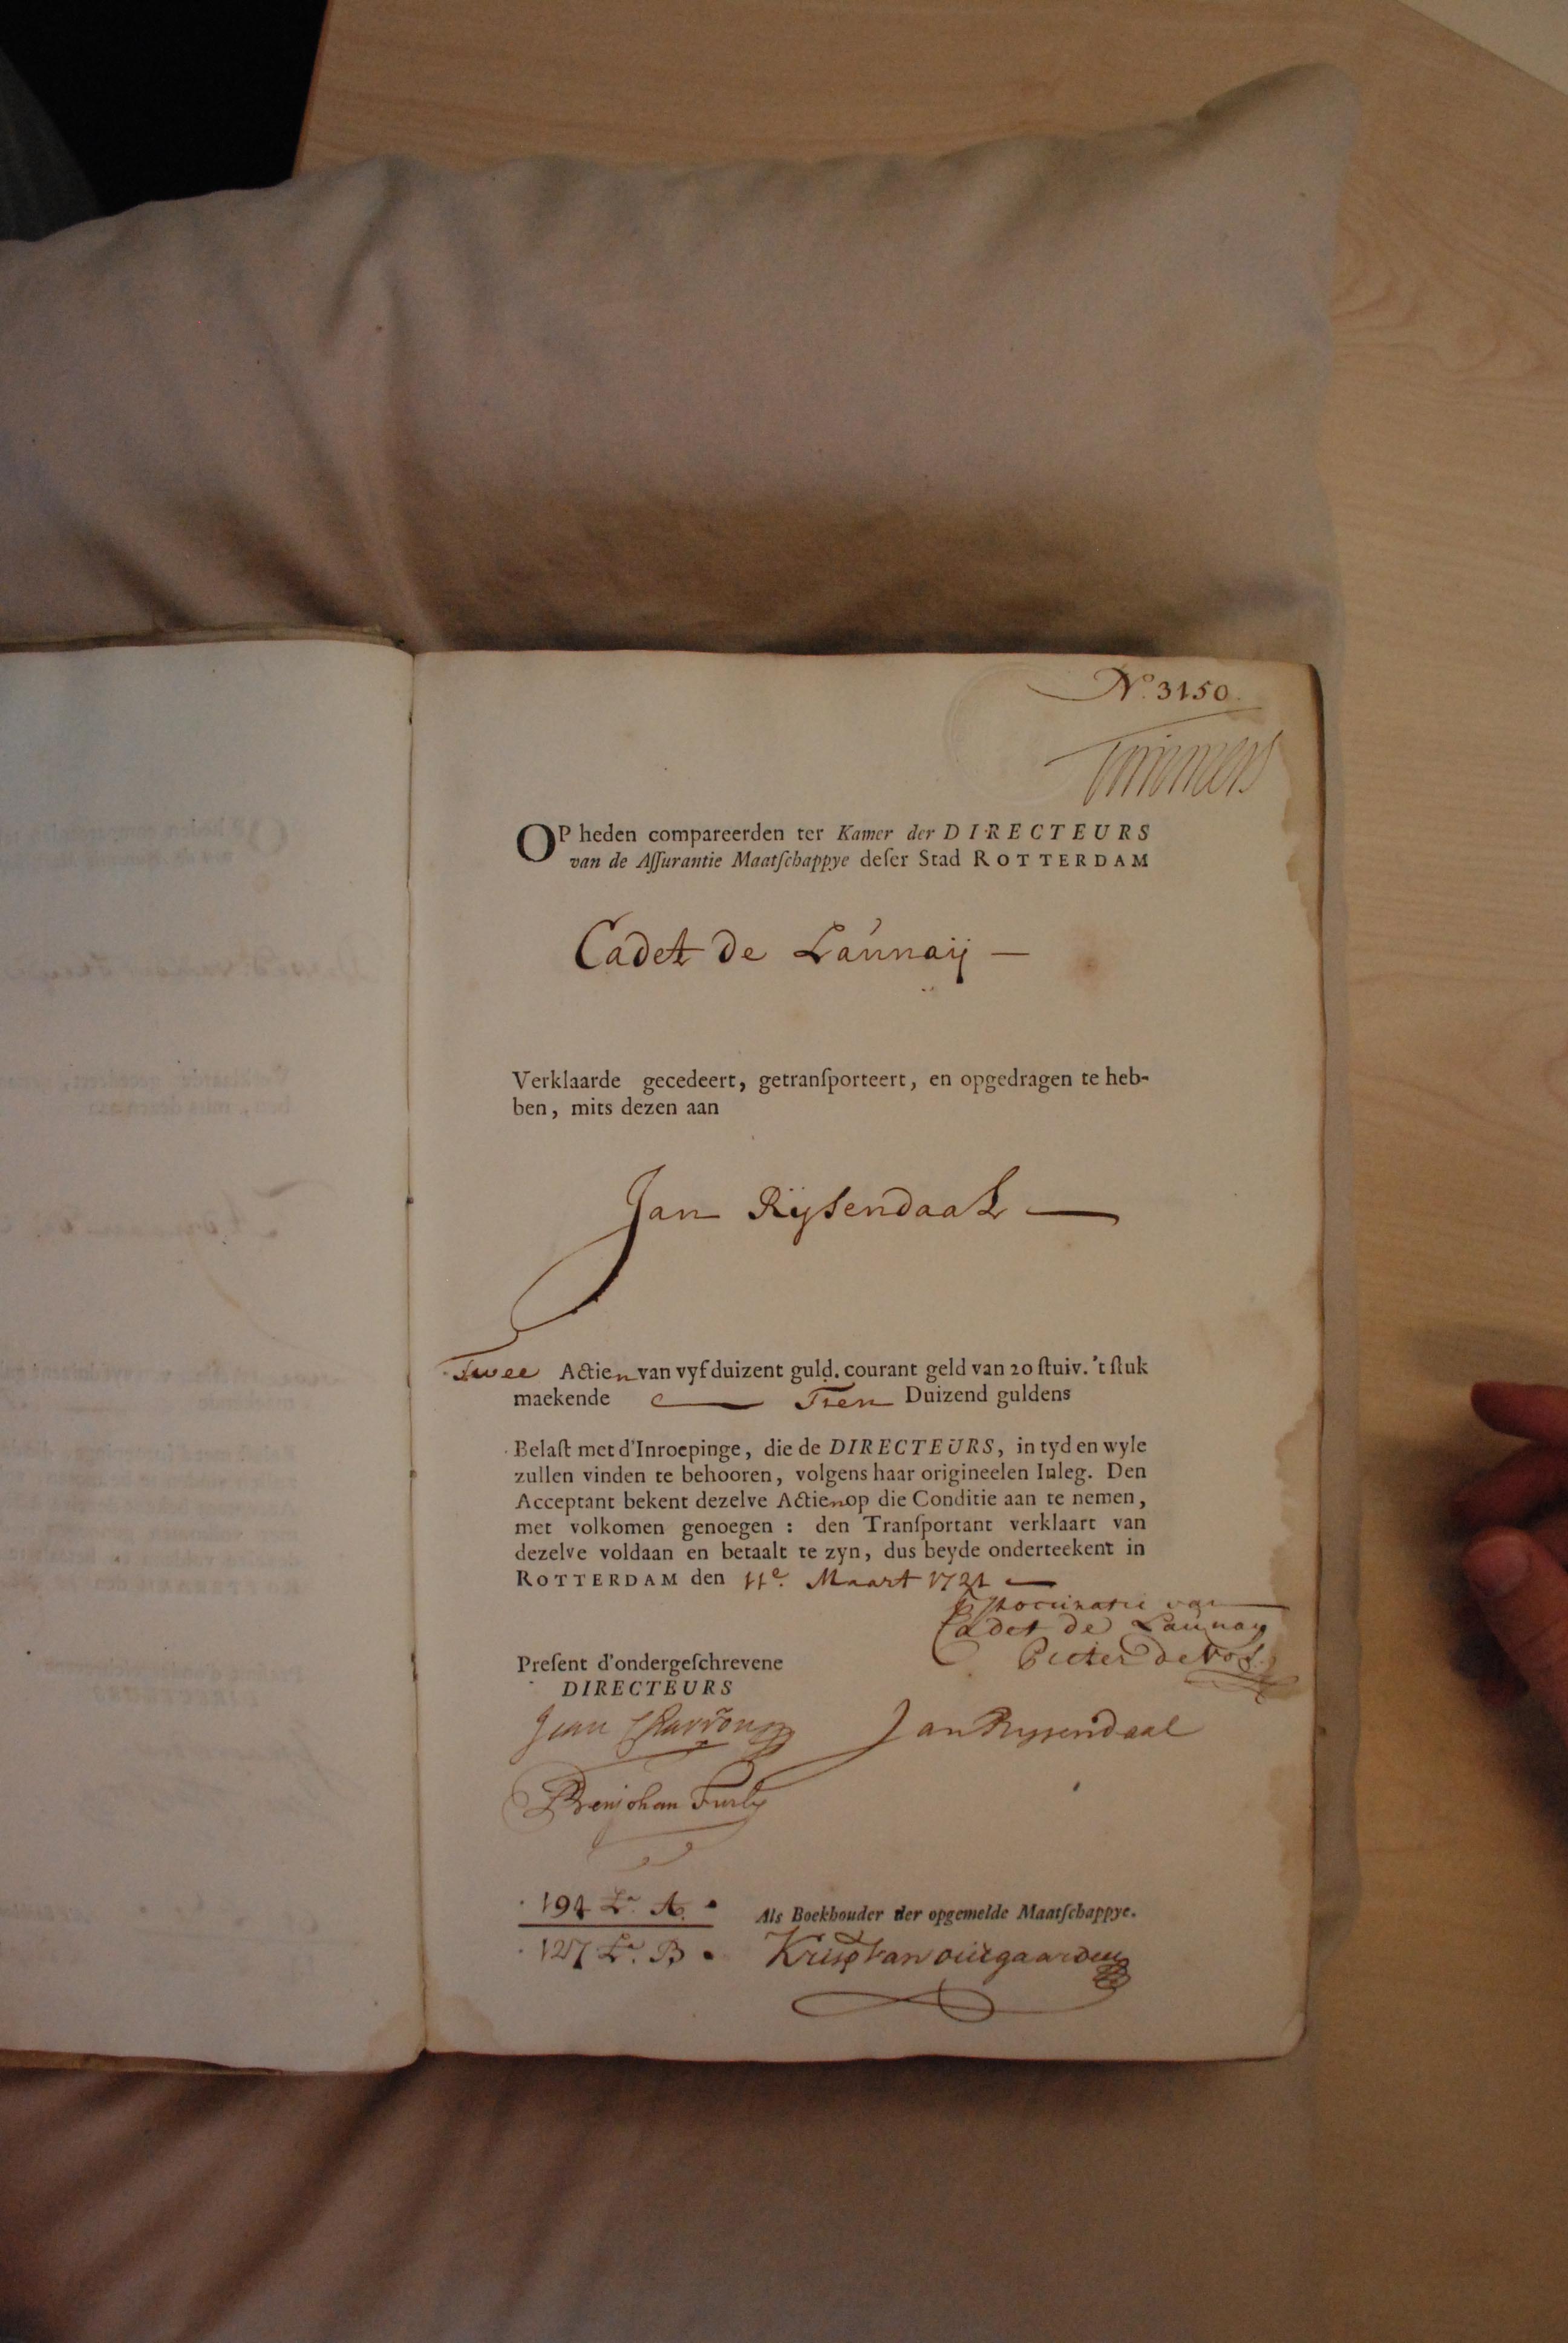 N.º 3150.
Timmers
OP heden compareerden ter Kamer der DIRECTEURS
van de Aſſurantie Maatſchappye deſer Stad ROTTERDAM
Cadet de Launaij —
Verklaarde gecedeert, getranſporteert, en opgedragen te heb-
ben, mits dezen aan
Jan Rijsendaal —
Twee Actien van vyf duizent guld. courant geld van 20 ſtuiv. 't ſtuk
maekende — Tien Duizend guldens
Belaſt met d'Inroepinge, die de DIRECTEURS, in tyd en wyle
zullen vinden te behooren, volgens haar origineelen Inleg. Den
Acceptant bekent dezelve Actien op die Conditie aan te nemen,
met volkomen genoegen : den Tranſportant verklaart van
dezelve voldaan en betaalt te zyn, dus beyde onderteekent in
ROTTERDAM den 11e. Maart 1721 —
procuratie van
Cadet de Launay
Pieter de Vos
Preſent d'ondergeſchrevene
DIRECTEURS
Jean
Jan Rysendaal
Benjohan Furly
194 Lr. A.
127 Lr. B
Als Boekhouder der opgemelde Maatſchappye.
Krisp van outgaarden